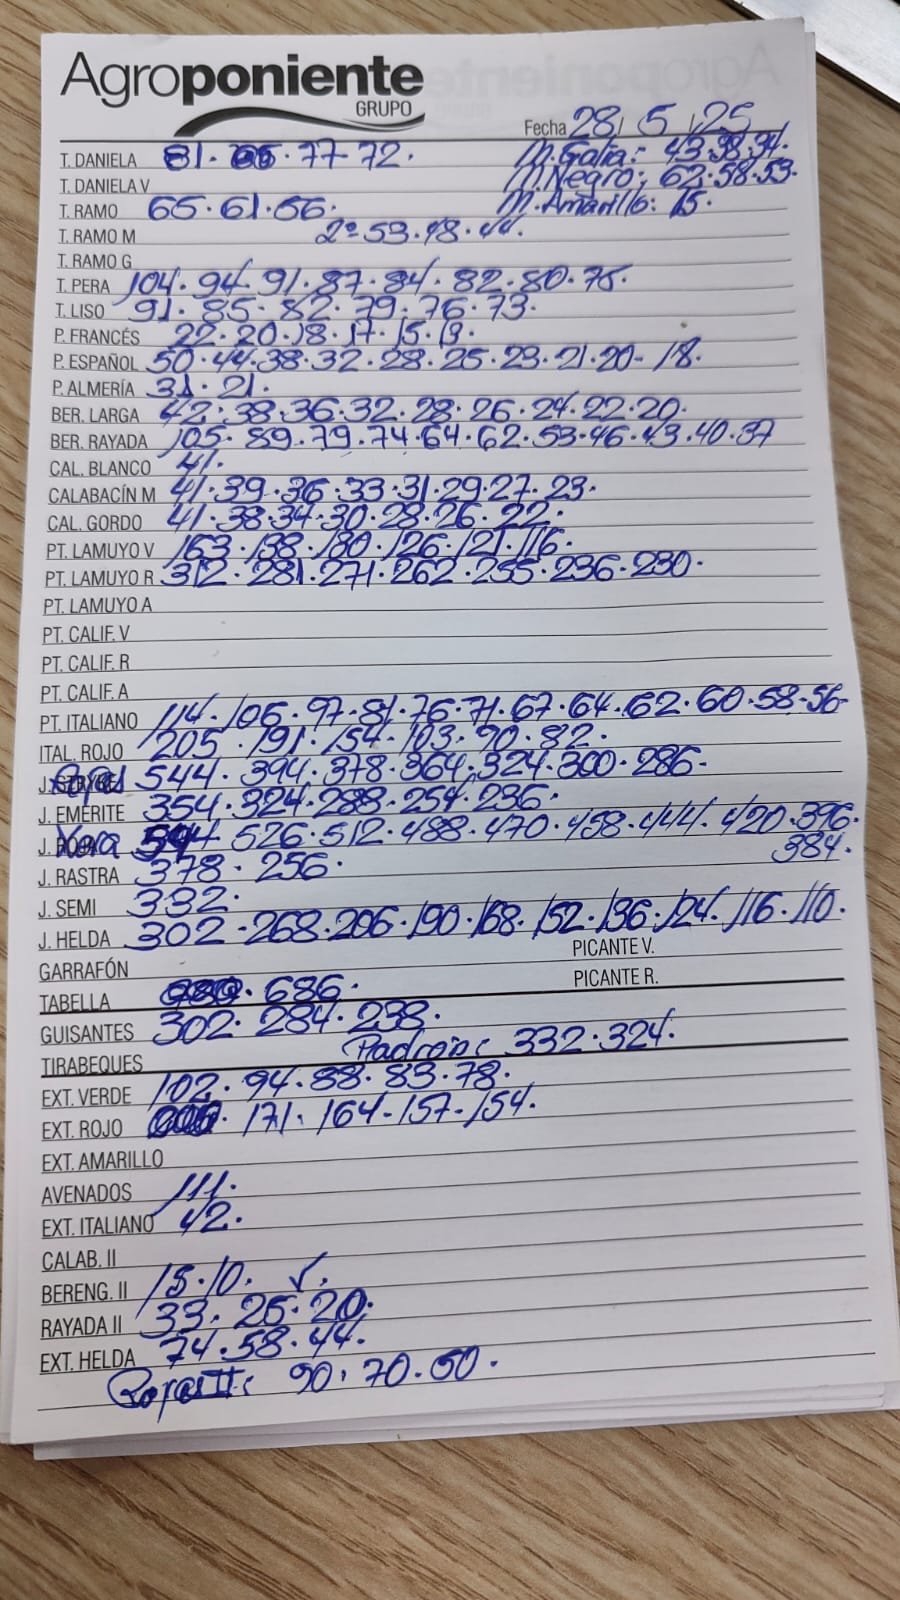 Agroponiente
GRUPO
Fecha 28/ 5 /25
T. DANIELA 81· 77-72. M.Galia:- 43·38·34.
T. DANIELA V M.Negro: 62·58·53.
T. RAMO 65·61·56. M.Amarillo: 15.
T. RAMO M 2ª 53·48·44.
T. RAMO G
T. PERA 104·94·91·87·84·82·80·75.
T. LISO 91·85·82·79·76·73.
P. FRANCÉS 22·20·18·17·15·13.
P. ESPAÑOL 50·44·38·32·28·25·23·21·20-18.
P. ALMERÍA 31·21.
BER. LARGA 42·38·36·32·28·26·24·22·20.
BER. RAYADA 105·89·79·74·64·62·53·46·43·40·37
CAL. BLANCO 41.
CALABACÍN M 41·39·36·33·31·29·27·23.
CAL. GORDO 41·38·34·30·28·26·22.
PT. LAMUYO V 163·138·130·126·121·116.
PT. LAMUYO R 312·281·271·262·255·236·230.
PT. LAMUYO A
PT. CALIF. V
PT. CALIF. R
PT. CALIF. A
PT. ITALIANO 114·106·97·81·76·71·67·64·62·60·58·56-
ITAL. ROJO 205·191·154·103·90·82.
544·394·378·364·324·300·286-
J. EMERITE 354·324·288·254·236.
Xera 544 526·512·488·470·458·444·420·396.
384.
J. RASTRA 378·256.
J. SEMI 332.
J. HELDA 302-268·206·190·168·152·136·124·116·110.
GARRAFÓN PICANTE V.
TABELLA 686. PICANTE R.
GUISANTES 302·284·238.
TIRABEQUES Padrón: 332·324.
EXT. VERDE 102·94·88·83·78.
EXT. ROJO 171·164-157-154.
EXT. AMARILLO
AVENADOS 111.
EXT. ITALIANO 42.
CALAB. II
BERENG. II 15·10.
RAYADA II 33·25·20.
EXT. HELDA 74·58·44.
Rojas II: 90·70·50.